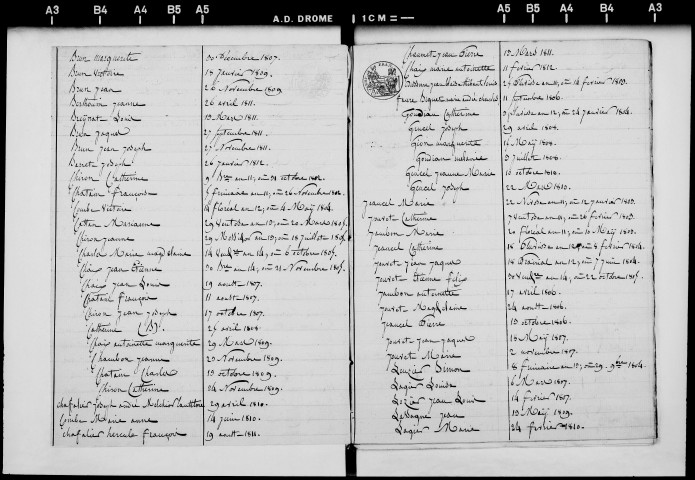 A3 B4 A4 B5 A5 A.D. DROME 1 CM A5 B5 A4 B4 A3
Brun marguerite 30 Décembre 1807.
Brun Victoire 18 Janvier 1809.
Brun Jean 26 Novembre 1809
Berthouin Jeanne 26 avril 1811.
Louis 19 Mars 1811.
Brun Jaques 27 septembre 1811.
Brun Jean Joseph 27 Novembre 1811.
Barret Joseph 26 Janvier 1812.
Chiron Catherine 9 Bre an 11; ou 31 octobre 1802.
Chatain François 5 frimaire an 11; ou 26 Novembre 1802.
Combe Victoire 14 floréal an 12; ou 4 Maÿ 1804.
Cattin Marianne 29 Ventose an 13; ou 20 Mars 1805.
Chiron Jeanne 29 Messidor an 13; ou 18 juillet 1805.
Charlon Marie magdelaine 14 Vendre an 14; ou 6 octobre 1805.
Chaix Jean Etienne 30 Bre an 14; ou 21 Novembre 1805.
Chaix Jean Louis 19 aoust 1807.
Chatain François 11 aoust 1807.
Chiron Jean Joseph 17 octobre 1807.
Catherine (B). 25 avril 1808.
Chaix antoinette marguerite 29 Mars 1809.
Chambon Jeanne 29 Novembre 1809.
Chatain Charles 19 octobre 1809.
Chiron Catherine 24 Novembre 1809.
chafalier Joseph andré Melchior 29 avril 1810.
Combe Marie anne 14 juin 1810.
chafalier hercule françois 19 aoust 1811.
Jean Pierre 19 Mars 1811.
Chaix marie antoinette 11 février 1812.
ou 14 février 1803.
11 septembre 1806.
Goudian Catherine 3 Pluviose an 12; ou 24 janvier 1804.
Gencel Joseph 29 avril 1808.
Geon marguerite 16 Maÿ 1808.
Goudian 3 Juillet 1808.
Gencel Jeanne Marie 10 octobre 1808.
Gencel Joseph 22 Mars 1810.
Jeancel Marie 22 Nivose an 11; ou 12 janvier 1803.
Jouvet Catherine 7 Ventose an 11; ou 26 février 1803.
Jambon Marie 20 floréal an 11; ou 10 Maÿ 1803.
Jeancel Catherine 18 Pluviose an 12; ou 8 février 1804.
Jouvet Jean Jaques 18 Prairial an 12; ou 7 juin 1804.
Jouvet Etienne felix 30 Vendre an 14; ou 22 octobre 1805.
Jambon antoinette 17 avril 1806.
Jouvet Magdelaine 24 aoust 1806.
Jeancel Pierre 19 octobre 1806.
Jouvet Jean Jaques 18 Maÿ 1807.
Jouvet Marie 2 novembre 1807.
Simon 8 frimaire an 13; ou 29 9bre 1804.
Lagier Louise 6 Mars 1807.
Jean Louis 14 février 1807.
Jean 19 Maÿ 1809.
Lagier Marie 24 février 1810.
A3 B4 A4 B5 A5 A5 B5 A4 B4 A3